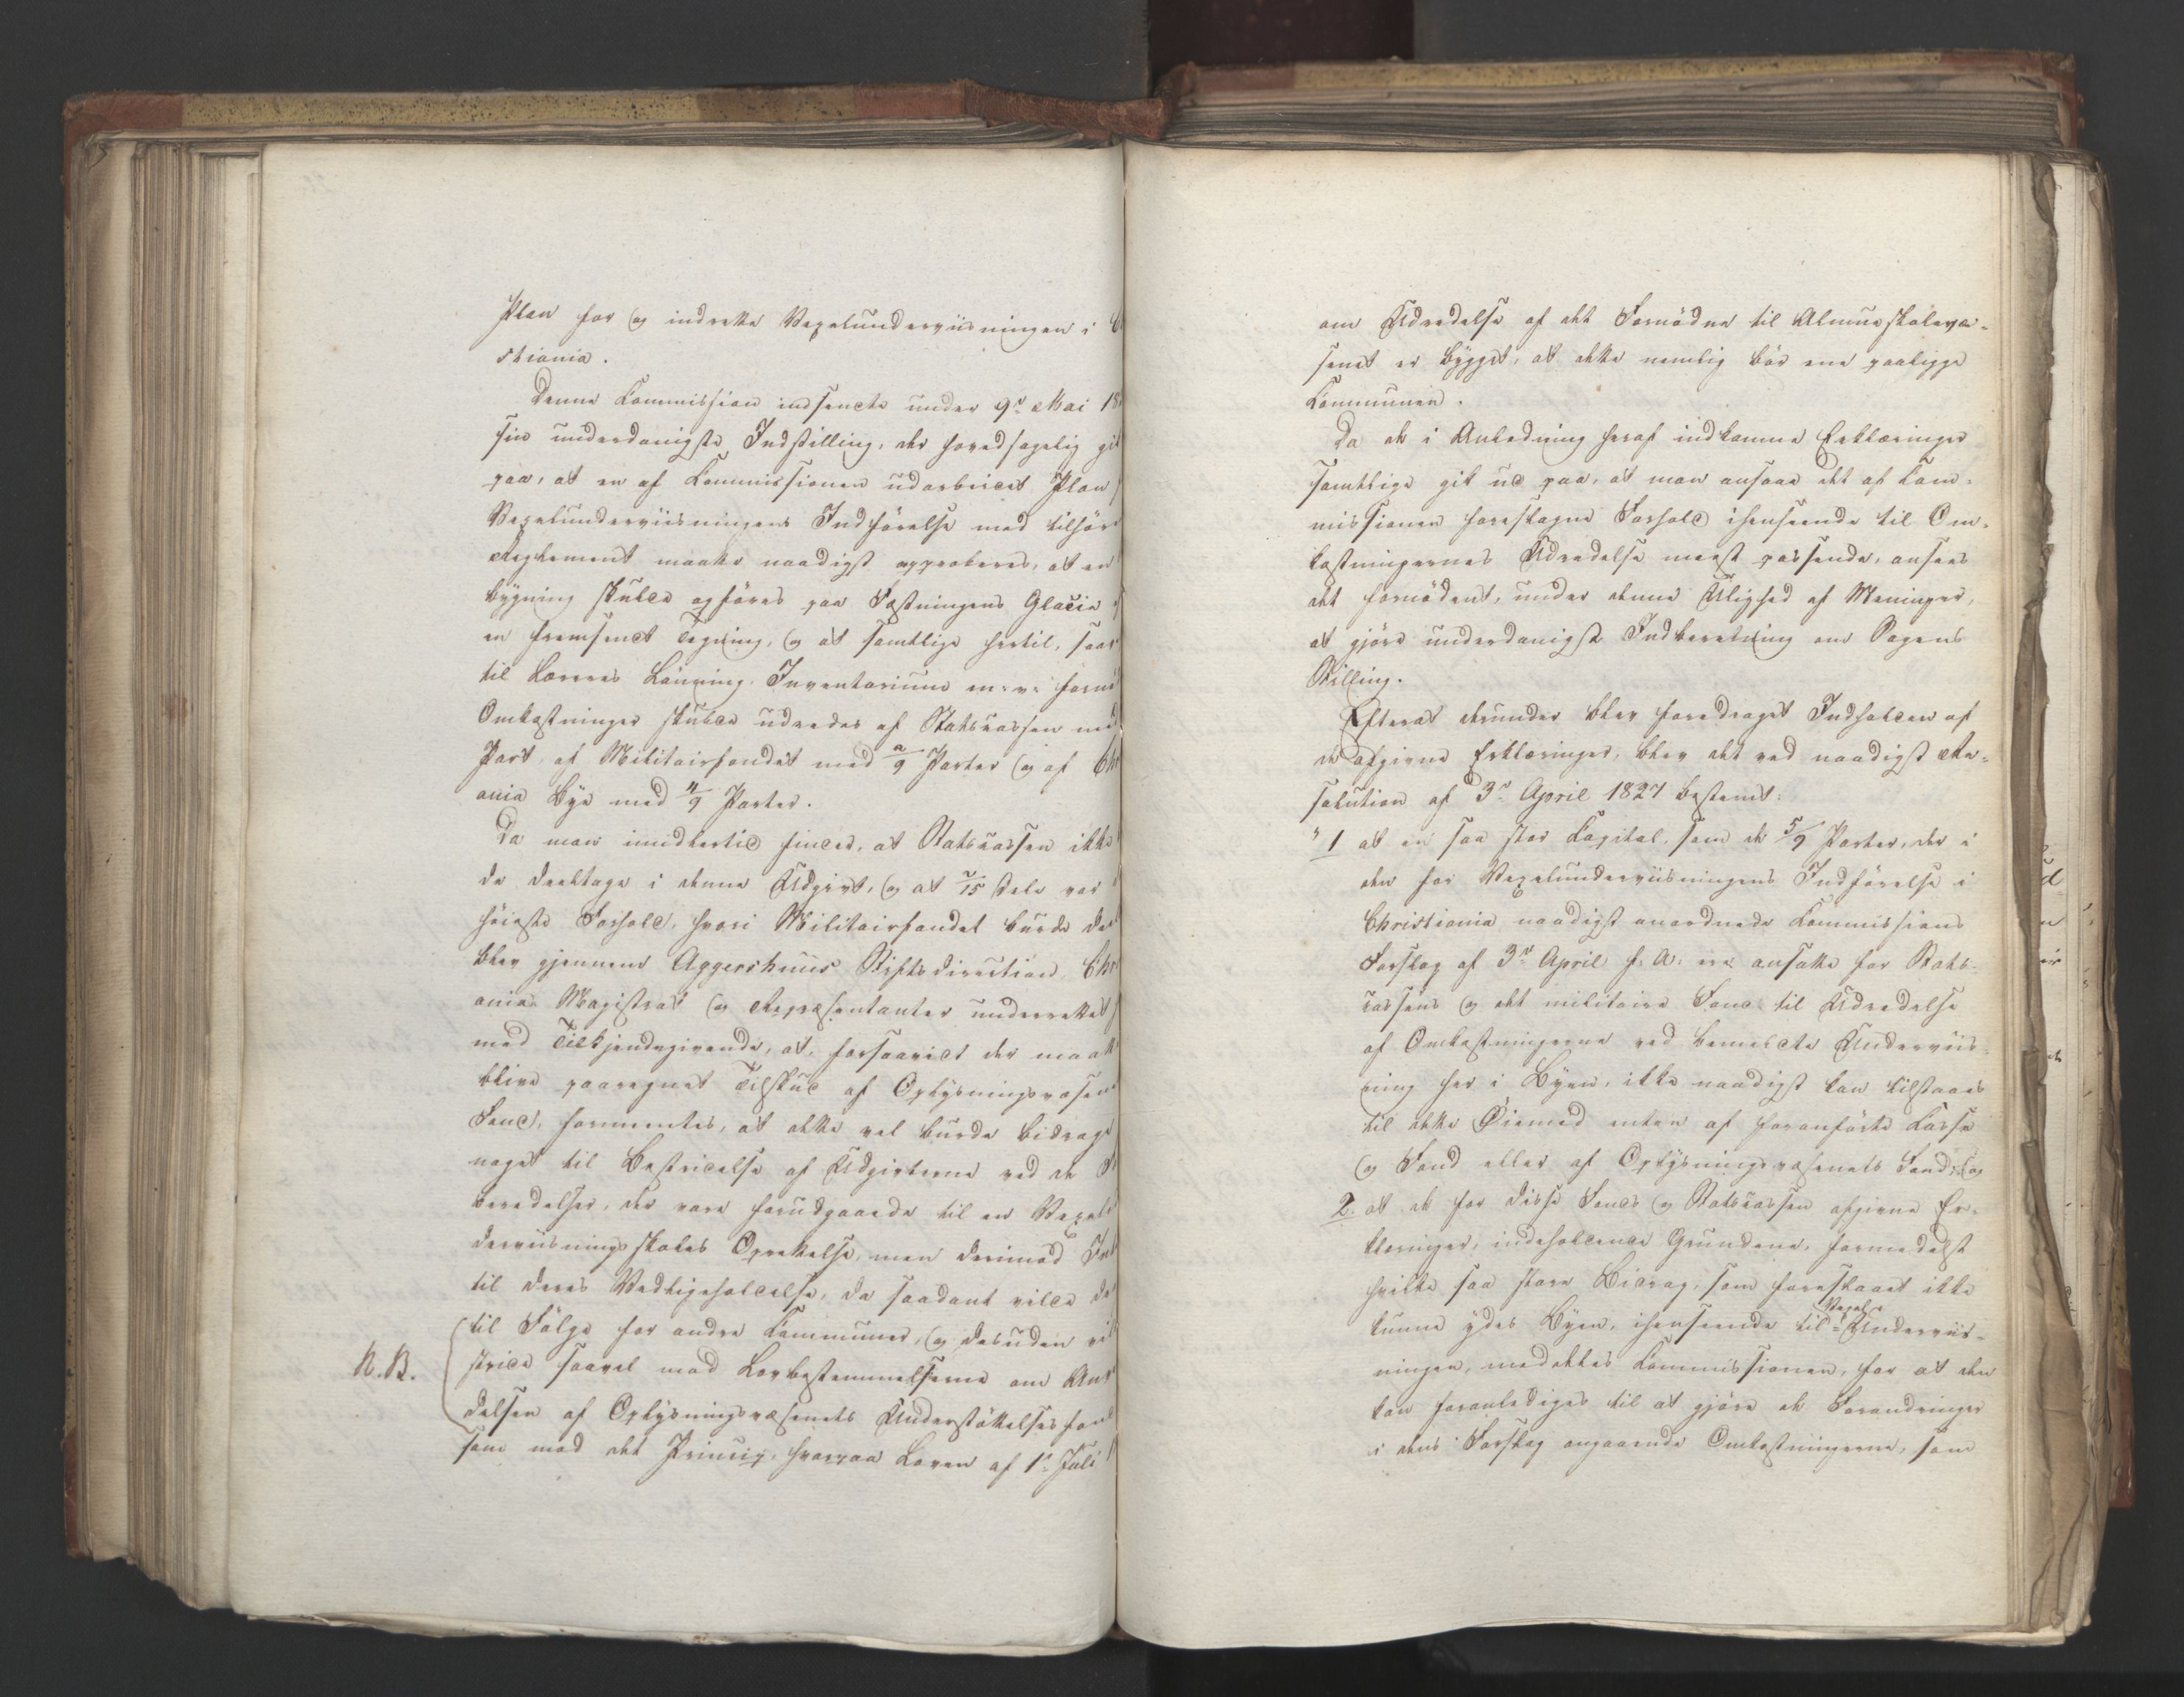 Plan for og indrette Vexelunderviisningen i
stiania.
Denne Commission indsendte under 9de Mai 18
sin underdanigste Indstilling, der hovedsagelig gik
paa, at en af Commissionen udarbeidet Plan
Vexelunderviisningens Indførelse med tilhør
Reglement maatte naadigst approberes, at en
Bygning skulde opføres paa Fæstningens Glacis
en fremsendt Tegning, og at samtlige hertil, saa
til Læreres Lønning, Inventarium m: v: forn
Omkostninger skulde udredes af Statskassen med
Part, af Militairfondet med 2/9 Parter og af Chr
ania Bye med 4/9 Parter.
Da man imidlertid fandt, at Statskassen ikke
de deeltage i denne Udgivt, og at 2/15 Dele var
høieste Forhold, hvori Militairfondet burde del
blev gjennem Aggershuus Stiftsdirection Chr
ania Magistrat og Repræsentanter underrettet
med Tilkjendegivende, at, forsaavidt der maatte
blive paaregnet Tilskud af Oplysningsvæsene
Fond, formeentes, at dette vel burde bidrage
noget til Bestridelse af Udgivterne ved de
beredelser, der vare forudgaaede til en Vexel
derviisningsskoles Oprettelse, men derimod Int
til deres Vedligeholdelse, da saadant vilde
til Følge for andre Communer, og desuden vil
N.B. stride saavel mod Lovbestemmelserne om Anv
delsen af Oplysningsvæsenets Understøttelsesfond
som mod det Princip, hvorpaa Loven af 1ste Juli
om Udredelse af det Fornødne til Almueskolevæ-
senet er bygget, at dette nemlig bør ene paaligge
Communen.
Da de i Anledning heraf indkomne Erklæringer
samtlige gik ud paa, at man ansaae det af Com-
missionen foreslagne Forhold ihenseende til Om-
kostningernes Udredelse meest passende, ansees
det fornødent, under denne Ulighed af Meninger,
at gjøre underdanigst Indberetning om Sagens
Stilling.
Efterat derunder blev foredraget Indholden af
de afgivne Erklæringer, blev det ved naadigst Re-
solution af 3de April 1827 bestemt:
"1 at en saa stor Capital, som de 5/9 Parter, der i
den for Vexelunderviisningens Indførelse i
Christiania naadigst anordnede Commissions
Forslag af 3de April f: A: ere ansatte for Stats-
cassens og det militaire Fond til Udredelse
af Omkostningerne ved bemeldte Underviis-
ning her i Byen, ikke naadigst kan tilstaaes
til dette Øiemed enten af foranførte Casse
og Fond eller af Oplysningsvæsenets Fond, og
2. at de for disse Fonds og Statskassen afgivne Er-
klæringer, indeholdende Grundene, formedelst
hvilke saa store Bidrag, som foreslaaet ikke
kunne ydes Byen, ihenseende til Vexel-Underviis-
ningen, meddeles Commissionen, for at den
kan foranlediges til at gjøre de Forandringer
i dens Forslag angaaende Omkostningerne, som